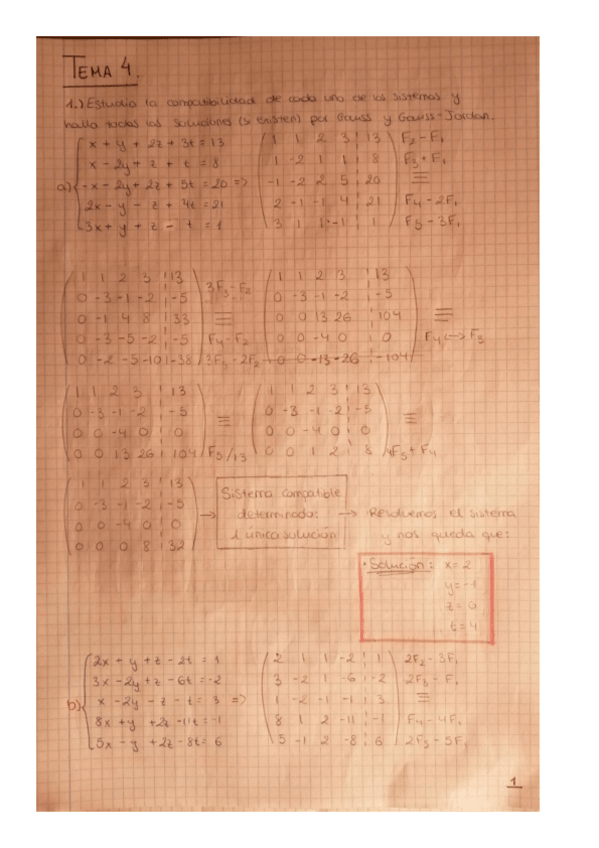 TEMA 4.
1.) Estudia la compatibilidad de cada uno de los sistemas y
halla todas las soluciones (si existen) por Gauss y Gauss-Jordan.
a) { x + y + 2z + 3t = 13
x - 2y + z + t = 8
-x - 2y + 2z + 5t = 20 =>
2x - y - z + 4t = 21
3x + y + z - t = 1
( 1 1 2 3 ¦ 13 ) F2 - F1
1 -2 1 1 ¦ 8 F3 + F1
-1 -2 2 5 ¦ 20 ≡
2 -1 -1 4 ¦ 21 F4 - 2F1
3 1 1 -1 ¦ 1 F5 - 3F1
( 1 1 2 3 ¦ 13 )
0 -3 -1 -2 ¦ -5 3F3 - F2
0 -1 4 8 ¦ 33 ≡
0 -3 -5 -2 ¦ -5 F4 - F2
0 -2 -5 -10 ¦ -38 3F5 - 2F2
( 1 1 2 3 ¦ 13 )
0 -3 -1 -2 ¦ -5
0 0 13 26 ¦ 104 ≡
0 0 -4 0 ¦ 0 F4 <-> F3
0 0 -13 -26 ¦ -104
( 1 1 2 3 ¦ 13 )
0 -3 -1 -2 ¦ -5 ≡
0 0 -4 0 ¦ 0
0 0 13 26 ¦ 104 F3/13
( 1 1 2 3 ¦ 13 )
0 -3 -1 -2 ¦ -5 ≡
0 0 -4 0 ¦ 0
0 0 1 2 ¦ 8 4F3 + F4
( 1 1 2 3 ¦ 13 )
0 -3 -1 -2 ¦ -5
0 0 -4 0 ¦ 0 →
0 0 0 8 ¦ 32
Sistema compatible
determinado:
1 única solución
→ Resolvemos el sistema
y nos queda que:
• Solución: x = 2
y = -1
z = 0
t = 4
b) { 2x + y + z - 2t = 1
3x - 2y + z - 6t = -2
x - 2y - z - t = 3 =>
8x + y + 2z - 11t = -1
5x - y + 2z - 8t = 6
( 2 1 1 -2 ¦ 1 ) 2F2 - 3F1
3 -2 1 -6 ¦ -2 2F3 - F1
1 -2 -1 -1 ¦ 3 ≡
8 1 2 -11 ¦ -1 F4 - 4F1
5 -1 2 -8 ¦ 6 2F5 - 5F1
1